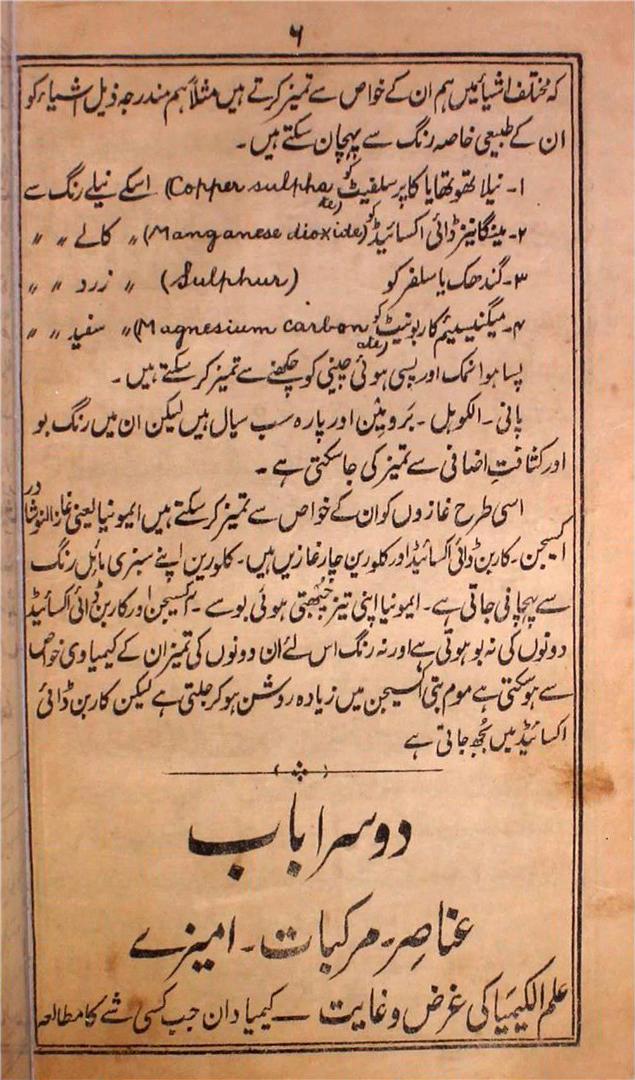 ۶
کہ مختلف اشیا ئیں ہم ان کے خواص سے تمیز کرتے ہیں مثلاً ہم مندرجہ ذیل اشیاء کو
ان کے طبیعی خاصہ رنگ سے پہچان سکتے ہیں۔
۱۔ نیلا تھوتھا یا کاپر سلفیٹ کو (Copper sulphate) اسکے نیلے رنگ سے
۲۔ مینگانیز ڈائی اکسائیڈ کو (Manganese dioxide) 〃 کالے 〃 〃
۳۔ گندھک یا سلفر کو (Sulphur) 〃 زرد 〃 〃
۴۔ میگنیسیئم کاربونیٹ کو (Magnesium carbonate) 〃 سفید 〃 〃
پسا ہوا نمک اور پسی ہوئی چینی کو چکھنے سے تمیز کر سکتے ہیں۔
پانی۔ الکوہل۔ برومین اور پارہ سب سیال ہیں لیکن ان میں رنگ بو
اور کثافتِ اضافی سے تمیز کی جا سکتی ہے۔
اسی طرح غازوں کو ان کے خواص سے تمیز کر سکتے ہیں ایمونیا یعنی غاز النوشادر
اکسیجن۔ کاربن ڈائی اکسائیڈ اور کلورین چار غازیں ہیں۔ کلورین اپنے سبزی مائل رنگ
سے پہچانی جاتی ہے۔ ایمونیا اپنی تیز چُبھتی ہوئی بو سے۔ اکسیجن اور کاربن ڈائی اکسائیڈ
دونوں کی نہ بو ہوتی ہے اور نہ رنگ اس لئے ان دونوں کی تمیز ان کے کیمیاوی خواص
سے ہو سکتی ہے موم بتی اکسیجن میں زیادہ روشن ہو کر جلتی ہے لیکن کاربن ڈائی
اکسائیڈ میں بُجھ جاتی ہے
دوسرا باب
عناصر۔ مرکبات۔ امیزے
علم الکیمیا کی غرض و غایت — کیمیا دان جب کسی شے کا مطالعہ